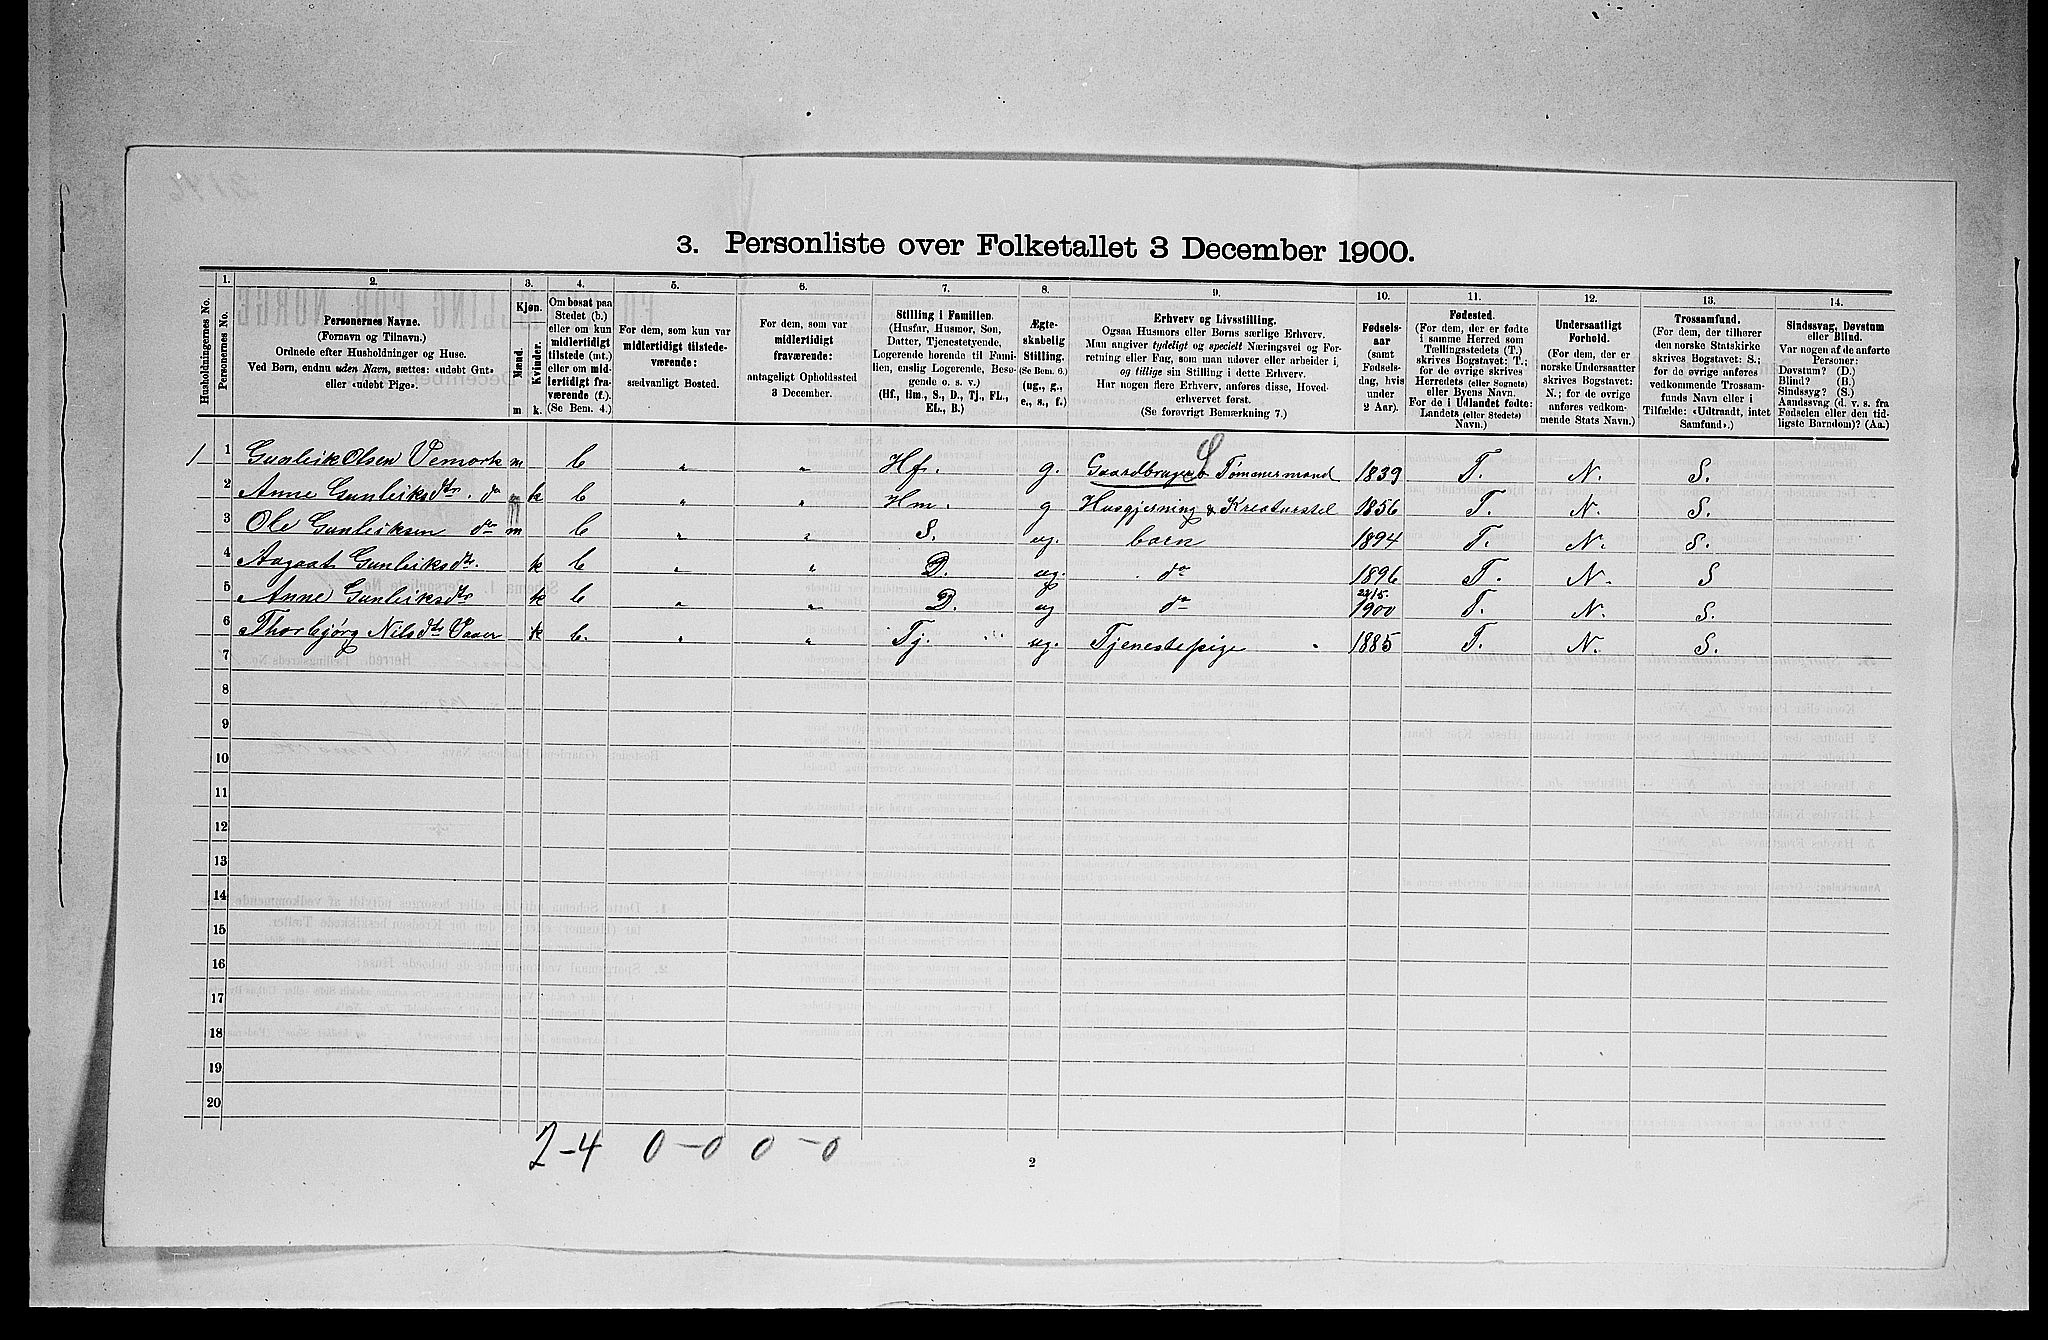 3. Personliste over Folketallet 3 December 1900.
Husholdningernes No.
1.
Personernes No.
2.
Personernes Navne.
(Fornavn og Tilnavn.)
Ordnede efter Husholdninger og Huse.
Ved Børn, endnu uden Navn, sættes: «udøbt Gut»
eller «udøbt Pige».
3.
Kjøn.
Mænd.
Kvinder.
m k.
4.
Om bosat paa
Stedet (b.)
eller om kun
midlertidigt
tilstede (mt.)
eller om mid-
lertidigt fra-
værende (f.).
(Se Bem. 4.)
5.
For dem, som kun var
midlertidigt tilstede-
værende:
sædvanligt Bosted.
6.
For dem, som var
midlertidigt
fraværende:
antageligt Opholdssted
3 December.
7.
Stilling i Familien.
(Husfar, Husmor, Søn,
Datter, Tjenestetyende,
Logerende hørende til Fami-
lien, enslig Logerende, Besø-
gende o. s. v.)
(Hf., Hm., S., D., Tj., FL.,
EL., B.)
8.
Ægte-
skabelig
Stilling.
(Se Bem. 6.)
(ug., g.,
e., s., f.)
9.
Erhverv og Livsstilling.
Ogsaa Husmors eller Børns særlige Erhverv.
Man angiver tydeligt og specielt Næringsvei og For-
retning eller Fag, som man udøver eller arbeider i,
og tillige sin Stilling i dette Erhverv.
Har nogen flere Erhverv, anføres disse, Hoved-
erhvervet først.
(Se forøvrigt Bemærkning 7.)
10.
Fødsels-
aar
(samt
Fødsels-
dag, hvis
under
2 Aar).
11.
Fødested.
(For dem, der er fødte
i samme Herred som
Tællingsstedets (T.)
skrives Bogstavet: T.;
for de øvrige skrives
Herredets (eller Sognets)
eller Byens Navn.
For de i Udlandet fødte:
Landets (eller Stedets)
Navn.)
12.
Undersaatligt
Forhold.
(For dem, der er
norske Undersaatter
skrives Bogstavet:
N.; for de øvrige
anføres vedkom-
mende Stats Navn.)
13.
Trossamfund.
(For dem, der tilhører
den norske Statskirke
skrives Bogstavet: S.;
for de øvrige anføres
vedkommende Trossam-
funds Navn eller i
Tilfælde: «Udtraadt, intet
Samfund».)
14.
Sindssvag, Døvstum
eller Blind.
Var nogen af de anførte
Personer:
Døvstum? (D.)
Blind? (B.)
Sindssyg? (S.)
Aandssvag (d. v. s. fra
Fødselen eller den tid-
ligste Barndom)? (Aa.)
1 1 Gunleik Olsen Vemork m b " " Hf. g. Gaardbruger S Tømmermand 1839 T. N. S.
2 Anne Gunleiksdtr. do k b " " Hm. g Husgjerning & Kreaturstel 1856 T. N. S.
3 Ole Gunleiksen do m b " " S. ug. barn 1894 T. N. S.
4 Aagaat Gunleiksdtr. k b " " D. ug. do 1896 T. N. S
5 Anne Gunleiksdtr k b " " D. ug do 1900 T. N. S.
6 Thorbjørg Nilsdtr Vaaer k b. " " Tj. ug. Tjenestepige 1885 T. N. S.
7
8
9
10
11
12
13
14
15
16
17
18
19
20
2-4 0-0 0-0
2